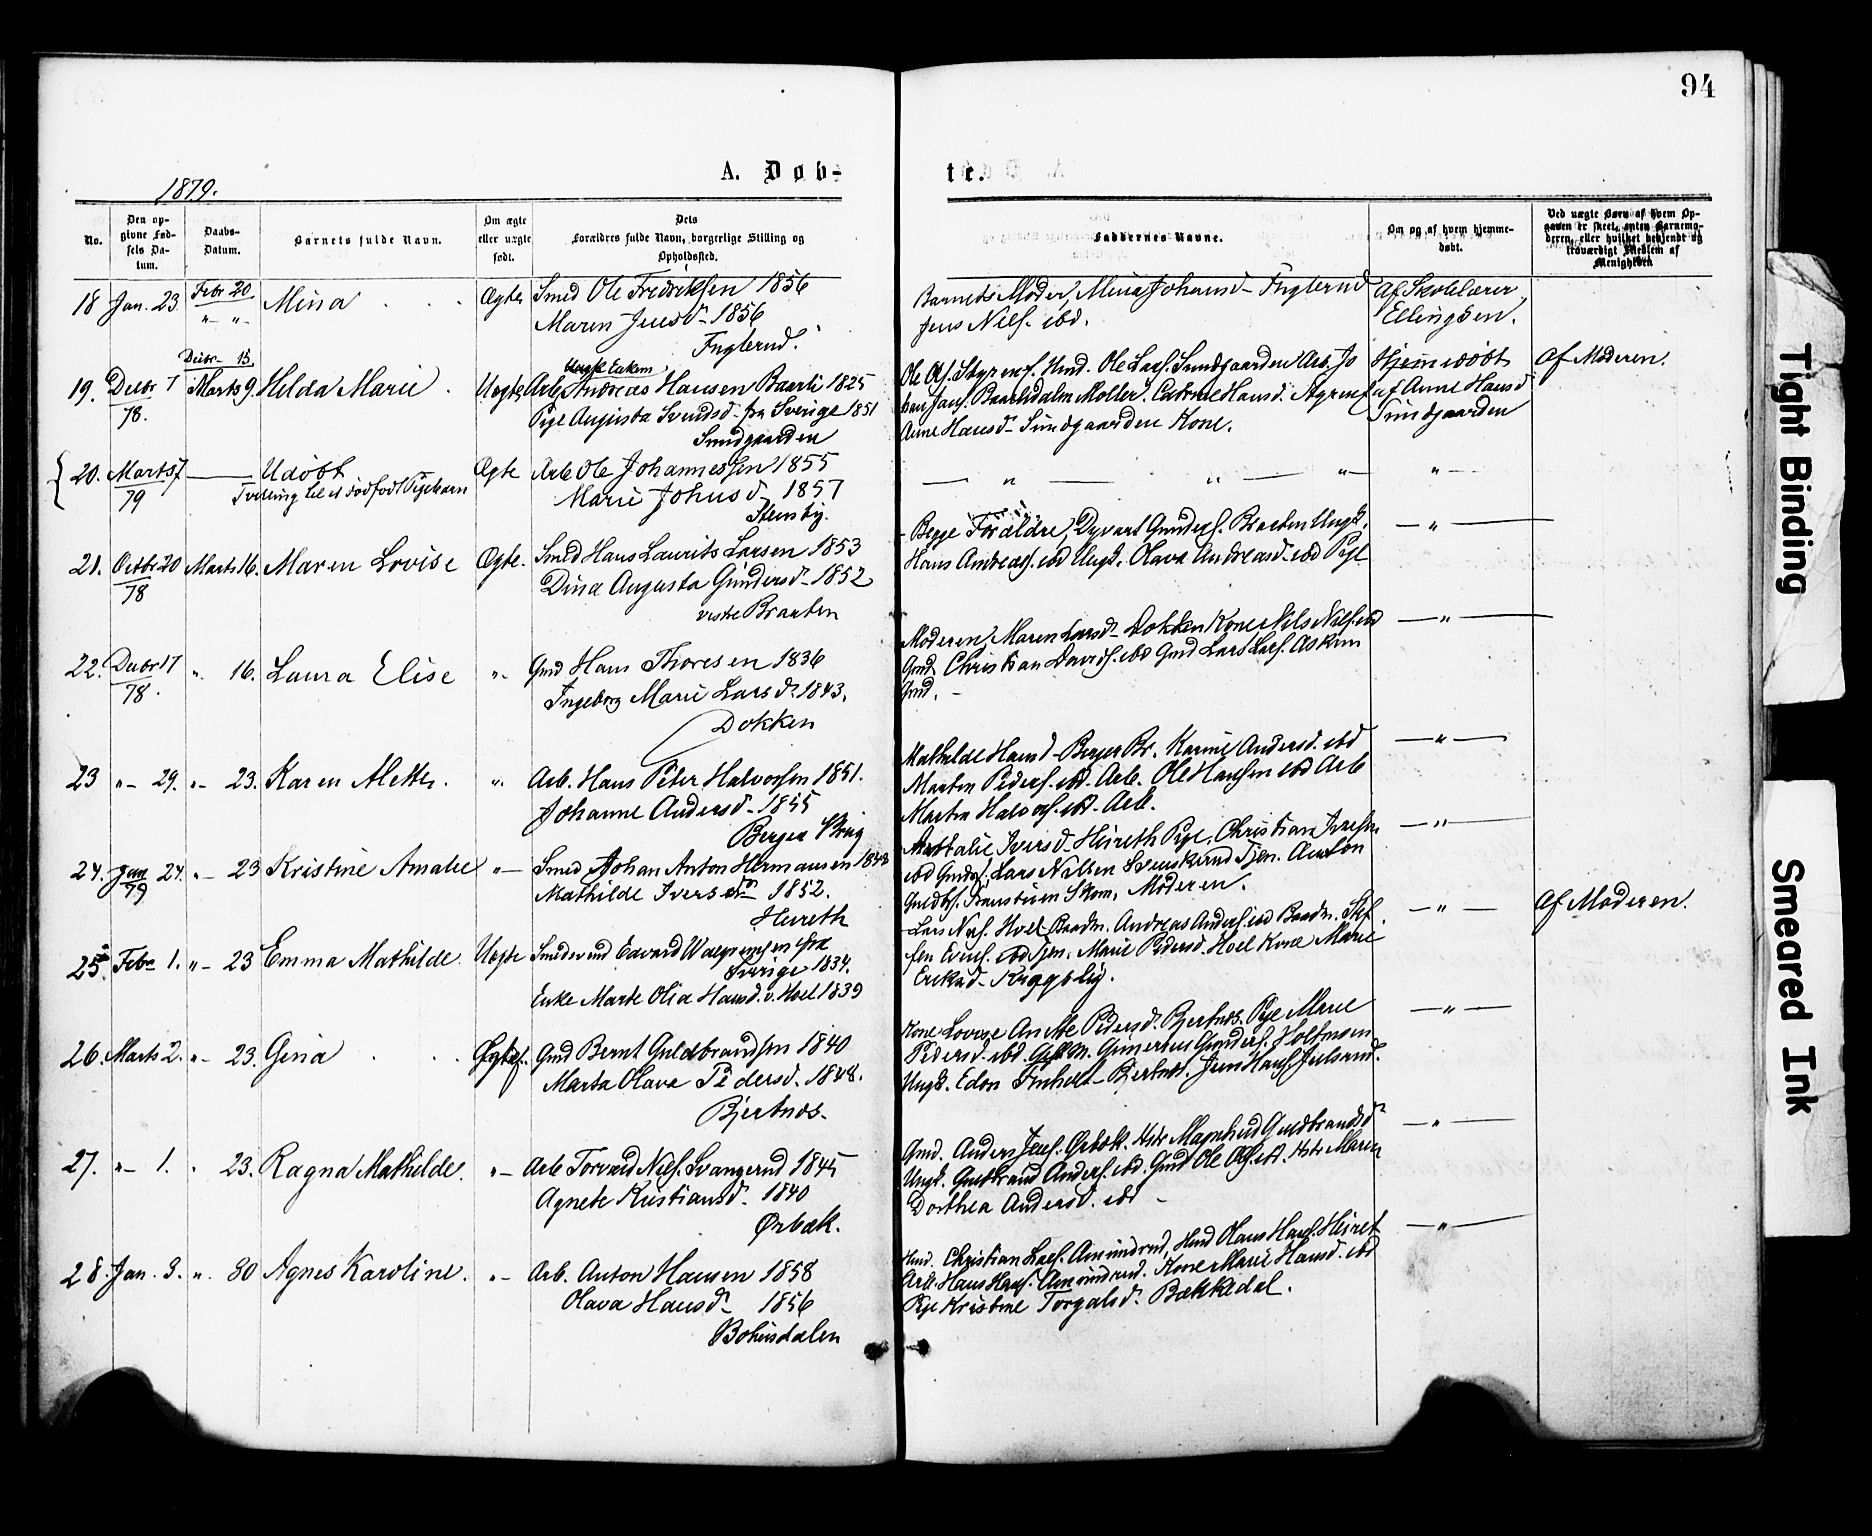 94
A. Døb-
te.
1879.
No.
Den op-
givne Fød-
sels Da-
tum.
Daabs-
Datum.
Barnets fulde Navn.
Om ægte
eller uægte
født.
Dets
Forældres fulde Navn, borgerlige Stilling og
Opholdssted.
Faddernes Navne.
Om og af hvem hjemme-
døbt.
Ved uægte Børn af hvem Op-
gaven er skeet, enten Barnemo-
deren, eller hvilket bekjendt og
troværdigt Medlem af
Menigheden
18 Jan. 23 Febr 20 Mina Ægte Smed Ole Fredriksen 1856
" "
Maren Jensd. 1856
Fuglerud.
Barnets Moder, Mina Johansd. Fuglerud
Jens Nils. ibd.
Af Skolelærer
Ellingsen.
Decbr 15
19. Decbr 7 Marts 9. Helda Marie Uægte Arb. Andreas Hansen 1825
78.
Pige Augusta Svendsd. fra Sverige 1851
Sundgaarden
Ole Ols. Hmd. Ole Lars. Sundgaarden Arb. Jo
han Jans. Møller.
Anne Hansd. Sundgaarden Kone.
Hjemmedøbt
af Anne Hansd
Sundgaarden
Af Moderen.
20. Marts 7 Udøbt Ægte Arb Ole Johannessen 1855
79
Tvilling til et dødfødt Pigebarn
Marie Johnsd. 1857
Stensby.
— " — " — " — " —
21. Octbr 20 Marts 16. Maren Lovise Ægte. Smed Hans Laurits Larsen 1853
78
Dina Augusta Gundersd. 1852
vestre Braaten
Begge Forældre, Dyvart Gunders. Braaten Ungk.
Hans Andreas. ibd Ungk. Olava Andreasd. ibd Pige
— " —
22. Decbr 17 " 16. Laura Elise " Gmd Hans Thoresen 1836
78.
Ingeborg Marie Larsd. 1843.
Dokken
Moderen, Maren Larsd. Dokken Kone Nils Nils. ibd
Gmd. Christian Davids. ibd Gmd Lars Lars. Askim
Gmd.
— " —
23 " 29. " 23. Karen Alette. " Arb. Hans Peter Halvorsen 1851.
Johanne Andersd. 1855
Berger
Mathilde Hansd. Berger Br. Karine Andersd. ibd
Martin Peders. ibd. Arb. Ole Hansen ibd Arb
Martin Halvors. ibd. Arb.
— " —
24. Jan 24. " 23 Kristine Amalie " Smed Johan Anton Hermansen 1848
79
Mathilde Iversd. 1852.
Heireth
Nathalie Iversd. Heireth Pige, Christian Iversen
ibd Lars Nilsen Tjen. Anton
Guldbs. Skom. Moderen.
— " —
25. Febr 1. " 23 Emma Mathilde. Uægte Smedsvend Edvard fra
Sverige 1834.
Enke Marte Olia Hansd. v. Hoel 1839
Lars Nils. Hoel Andreas Anders. ibd Stef
fen Evens. ibd Tjen. Marie Pedersd. Hoel Kone Marie
Eriksd.
— " —
Af Moderen.
26. Marts 2. " 23. Gina Ægte. Gmd Bernt Guldbrandsen 1840
Marta Olava Pedersd. 1848.
Bjertnæs.
Kone Lovise Anette Pedersd. Bjertnæs. Pige Marie
Pedersd. ibd. Gunerius Gunders.
Ungk. Edon Bjertnæs. Jens Hans. Julsrud.
— " —
27. " 1. " 23. Ragna Mathilde. " Arb Torvald Nils. Svangerud 1845
Agnete Kristiansd. 1840
Ørbæk.
Gmd. Anders Jens. Ørbæk. Hstr Magnhild Guldbrandsd
Ungk. Guldbrand Anders. ibd. Gmd Ole Ols. ibd. Hstr Maren
Dorthea Andersd. ibd
— " —
28. Jan. 3. " 30 Agnes Karoline. " Arb. Anton Hansen 1858
Olava Hansd. 1856
Bohusdalen
Hmd. Christian Lars. Amundrud, Hmd Olaus Hans. Heiret
Arb. Hans Hans. Amundrud. Kone Marie Hansd. ibd
Pige Kristine Torgalsd. Bækkedal.
— " —
Tight Binding
Smeared Ink